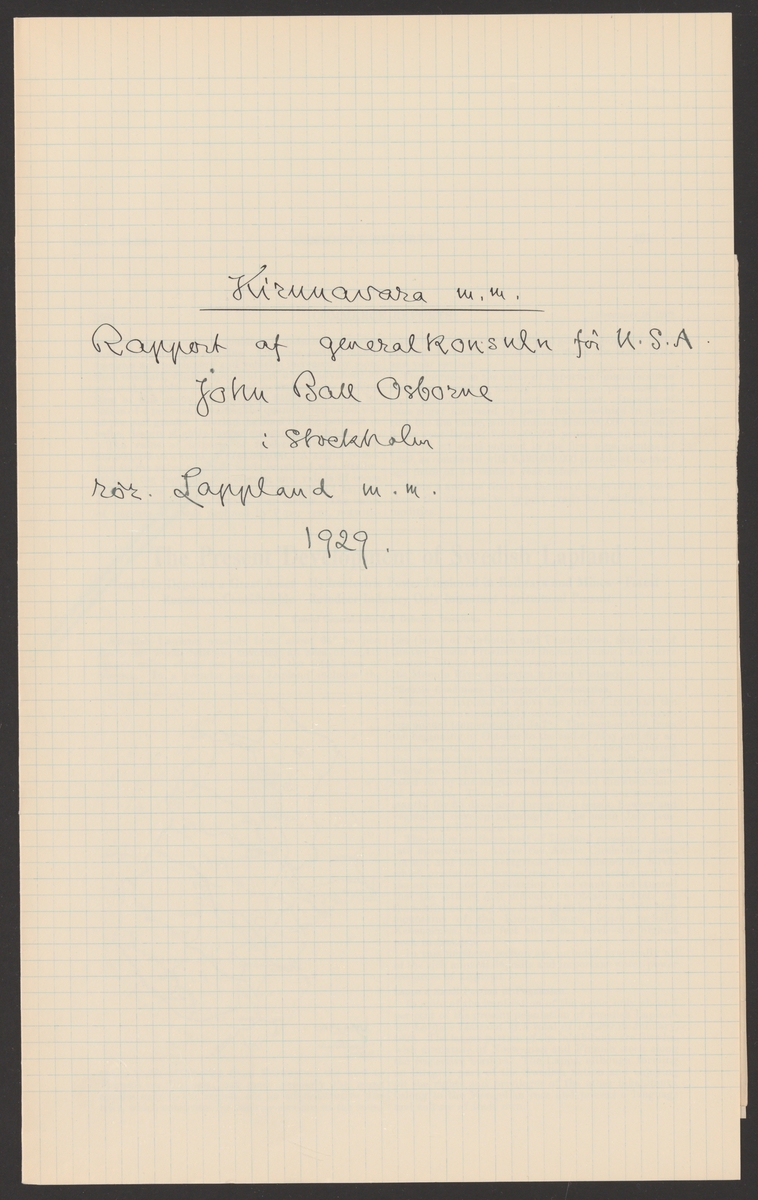 Kirunavara m.m.
Rapport af generalkonsuln för U.S.A.
John Ball Osborne
i Stockholm
rör. Lappland m.m.
1929.